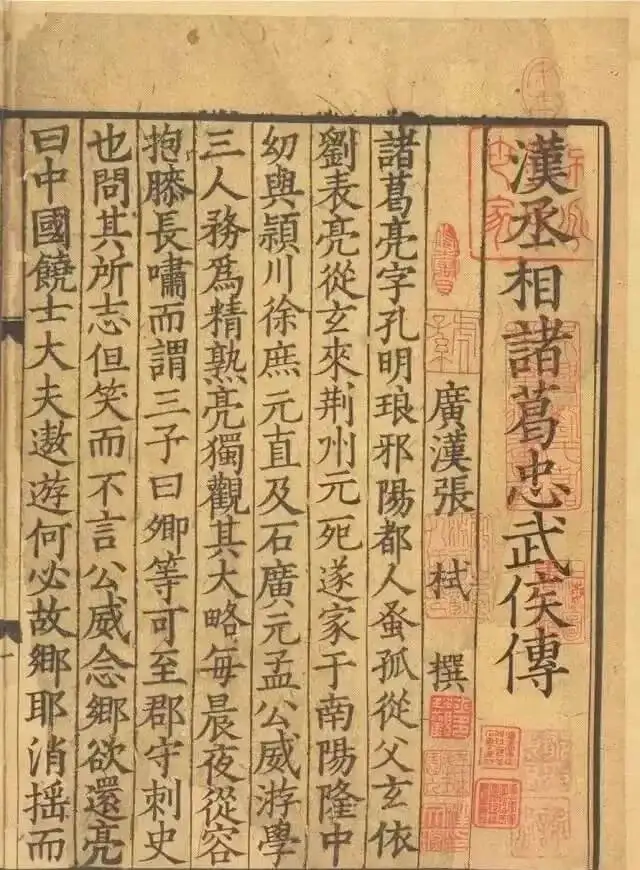 漢丞相諸葛忠武侯傳
廣漢張 栻 撰
諸葛亮字孔明琅邪陽都人蚤孤從父玄依
劉表亮從玄來荆州玄死遂家于南陽隆中
幼與潁川徐庶元直及石廣元孟公威游學
三人務爲精熟亮獨觀其大略每晨夜從容
抱膝長嘯而謂三子曰卿等可至郡守刺史
也問其所志但笑而不言公威念鄉欲還亮
曰中國饒士大夫遨遊何必故鄉耶消摇而